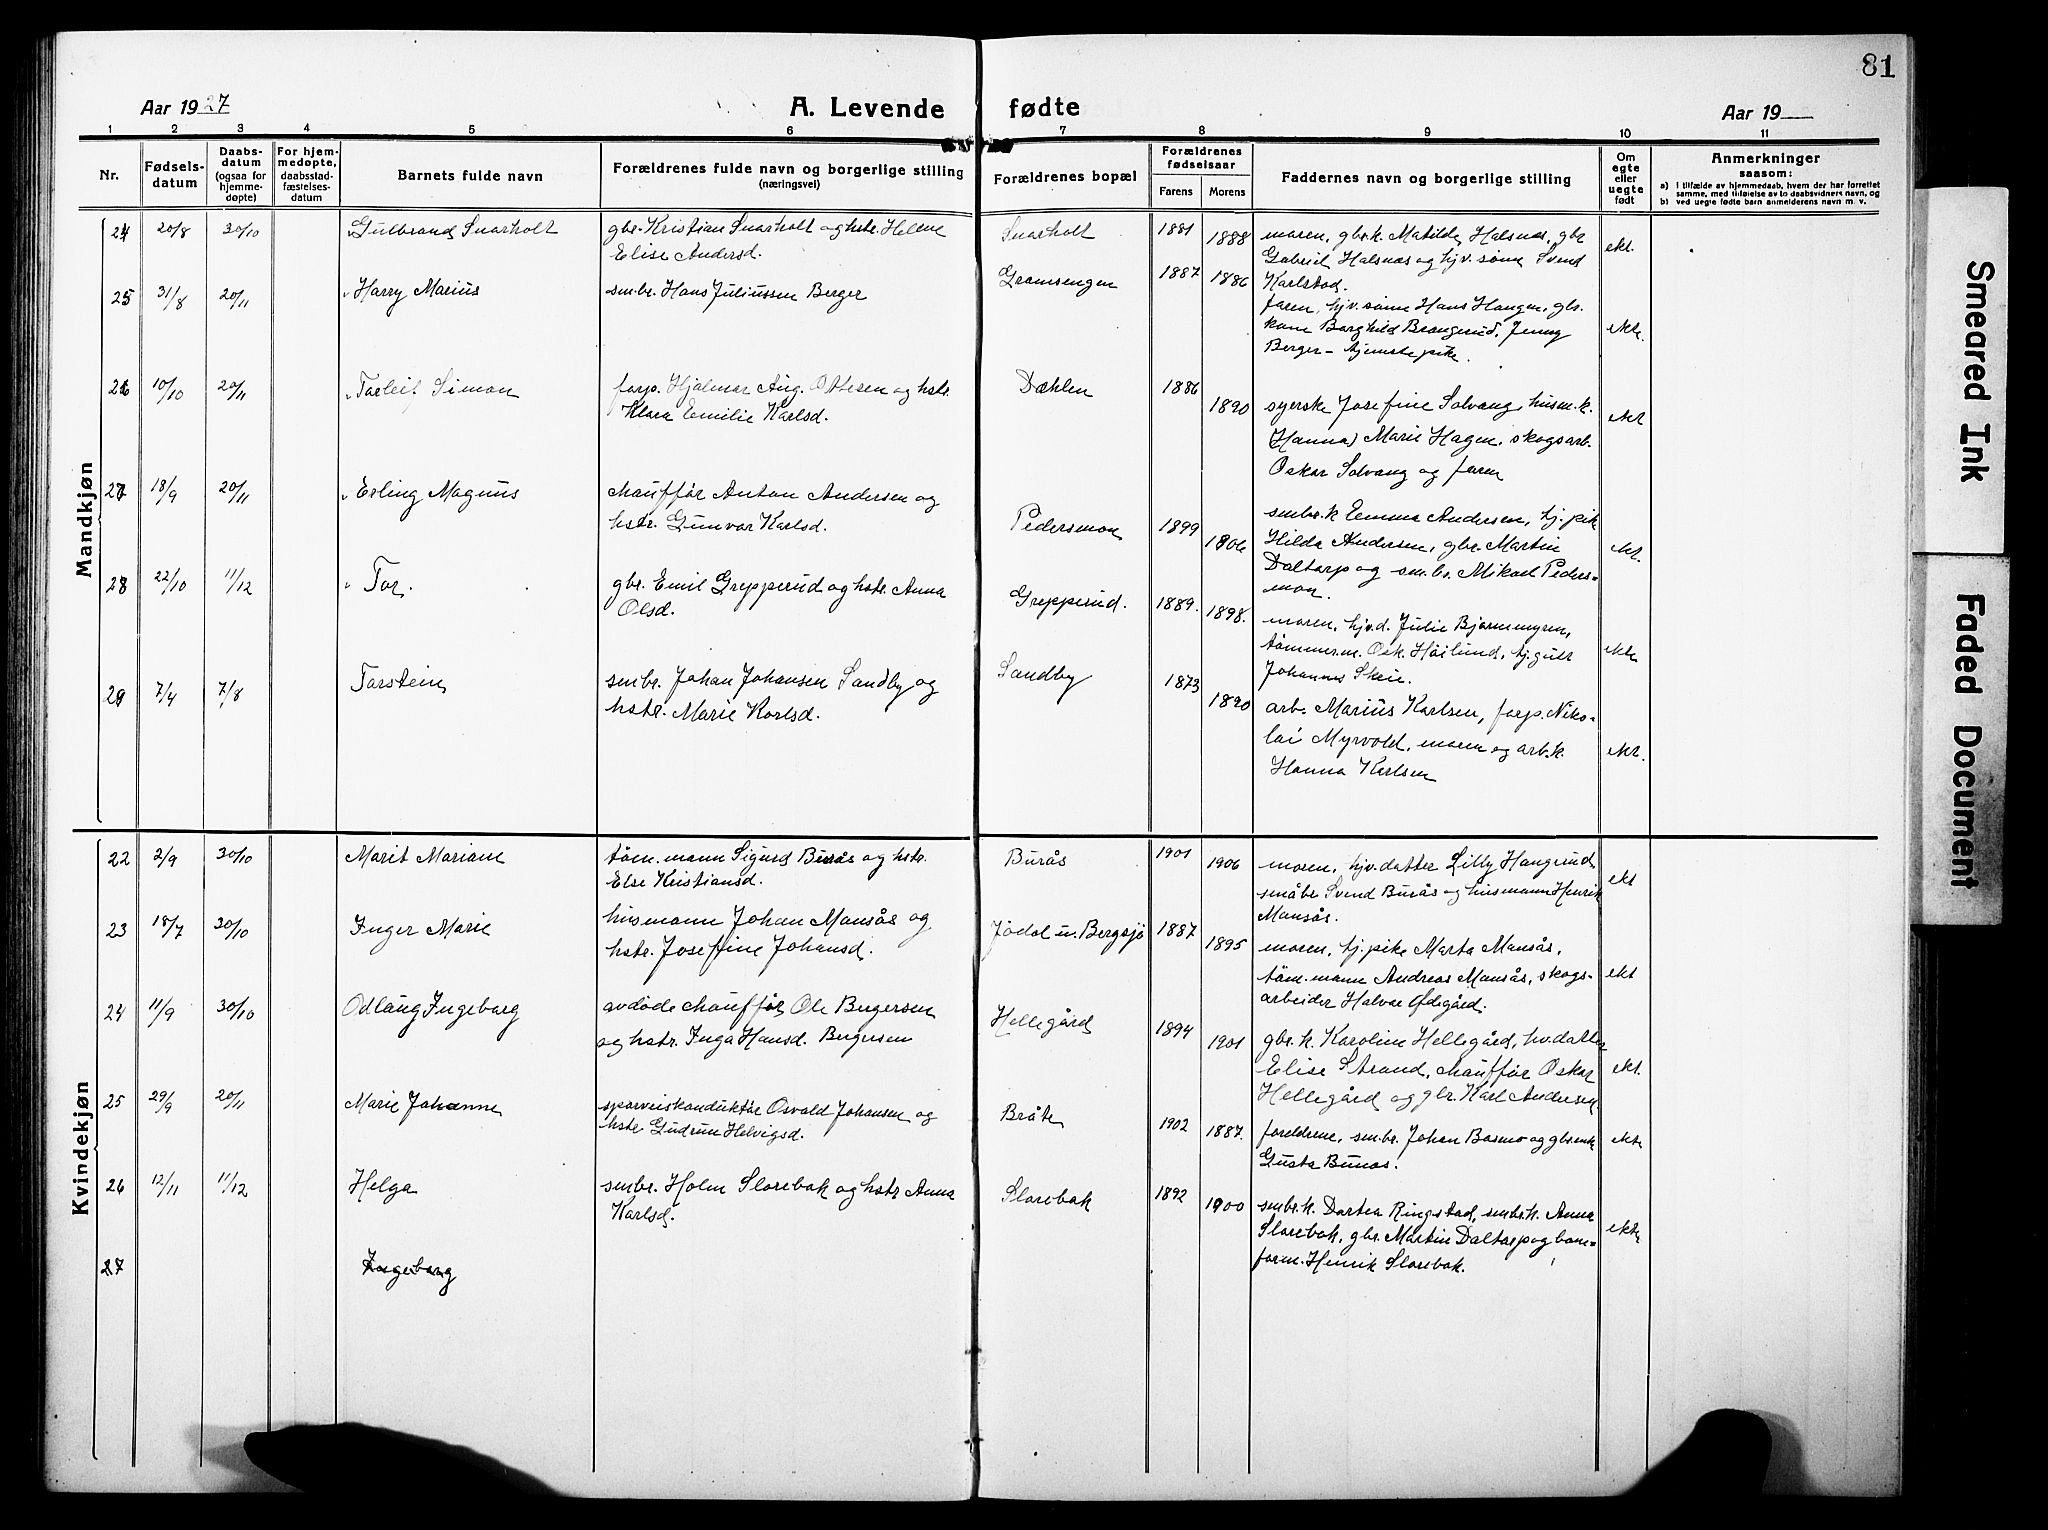 81
Aar 1927
A. Levende fødte
Aar 19
1 2 3 4 5 6 7 8 9 10 11
Nr.
Fødsels-
datum
Daabs-
datum
(ogsaa for
hjemme-
døpte)
For hjem-
medøpte,
daabsstad-
fæstelses-
datum
Barnets fulde navn
Forældrenes fulde navn og borgerlige stilling
(næringsvei)
Forældrenes bopæl
Forældrenes
fødselsaar
Farens Morens
Faddernes navn og borgerlige stilling
Om
egte
eller
uegte
født
Anmerkninger
saasom:
a) i tilfælde av hjemmedaab, hvem der har forrettet
samme, med tilføielse av to daabsvidners navn, og
b) ved uegte fødte barn anmelderens navn m. v.
Mandkjøn
24 20/8 30/10 Gulbrand Snarholt
gbr. Kristian Snarholt og hstr. Helene
Elise Andersd.
Snarholt 1881 1888
moren, gbr.k. Matilde Halsnæs, gbr
Gabriel Halsnæs og hjv. sønn Svend
Karlstad.
ekt.
25 31/8 20/11 Harry Marius
smbr. Hans Juliussen Berger
Gramsengen 1887 1886
faren, hjv. sønn Hans Haugen, gbr.
kone Borghild Brangerud, Jenny
Berger - tjenstepike.
ekte.
26 10/10 20/11 Torleif Simon
forp. Hjalmar Aug. Ottesen og hstr.
Klara Emilie Karlsd.
Dæhlen 1886 1890
syerske Josefine Solvang, husm.k.
Hanna Marie Hagen, skogsarb.
Oskar Solvang og faren
ekt
27 18/9 20/11 Erling Magnus
chauffør Anton Andersen og
hstr. Gunvor Karlsd.
Pedersmon 1899 1906
smbr.k Emma Andersen, tj. pik
Hilda Andersen, gbr. Martin
Daltorp og sm.br. Mikael Peders-
mon.
ekt.
28 22/10 11/12 Tor.
gbr. Emil Grepperud og hstr. Anna
Olsd.
Grepperud. 1889. 1898.
moren, hjv.d. Julie Bjørnemyren,
tømmerm. Osk. Høilund, tj.gutt
Johannes Skeie.
ekte
29 7/4 7/8 Torstein
smbr. Johan Johansen Sandby og
hstr. Marie Karlsd.
Sandby 1873 1890
arb. Marius Karlsen, forp. Niko-
lai Myrvold, moren og arb.k.
Hanna Karlsen
ekt.
Kvindekjøn
22 2/9 30/10 Marit Mariane
tøm. mann Sigurd Burås og hstr.
Else Kristiansd.
Burås 1901 1906
moren, hjv. datter Lilly Haugerud,
småbr Svend Burås og husmann Henrik
Mansås.
ekt
23 18/7 30/10 Inger Marie
husmann Johan Mansås og
hstr. Josefine Johansd.
Jødal u. Bergsjø 1887 1895
moren, tj. pike Marta Mansås,
tøm. mann Andreas Mansås, skogs-
arbeider Halvor Ødegård.
ekt
24 11/9 30/10 Odlaug Ingeborg
avdøde chauffør Ole Bergersen
og hstr. Inga Hansd. Bergersen
Hellegård 1894 1901
gbr. k. Karoline Hellegård, hv.datter
Elise Strand, chauffør Oskar
Hellegård og gbr. Karl Andersen.
ekt.
25 29/9 20/11 Marie Johanne
sporveiskonduktør Osvald Johansen og
hstr. Gudrun Helvigsd.
Bråte 1902 1887.
foreldrene, smbr. Johan Bosmo og gbrenk
Gusta Bunæs.
ekte
26 12/11 11/12 Helga
smbr. Holm Slorebak og hstr Anna
Karlsd.
Slorebak 1892 1900
smbr.k. Dortea Ringstad, smbr.k. Anna
Slorebak, gbr. Martin Daltorp og ban-
form. Henrik Slorebak.
ekte
27 Ingeborg
Smeared Ink
Faded Document